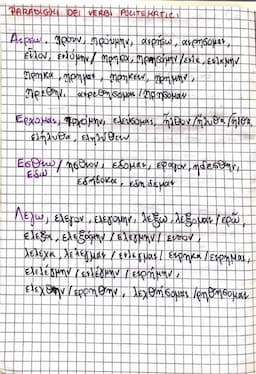 PARADIGMI DEI VERBI POLITEMATICI
Αιρεω, ηρουν, ηρουμην, αιρησω, αιρησομαι,
ειλον, ειλομην /
ηρηκα, ηρημαι, ηρηκειν, ηρημην,
ηρεθην, αιρεθησομαι / ηρησομαι
Ερχομαι, ηρχομην, ελευσομαι, ηλθον/ηλυθα/ηλθα,
εληλυθα, εληλυθειν
Εσθιω / ησθιον, εδομαι, εφαγον, ηδεσθην,
Εδω
εδηδοκα, εδηδεμαι
Λεγω, ελεγον, ελεγομην, λεξω, λεξομαι / ερω,
ελεξα, ελεξαμην / ελεγμην / ειπον,
λελεχα, λελεγμαι / ειλεγμαι / ειρηκα / ειρημαι,
ελελεγμην / ειλεγμην / ειρημην,
ελεχθην / ερρηθην, λεχθησομαι / ρηθησομαι